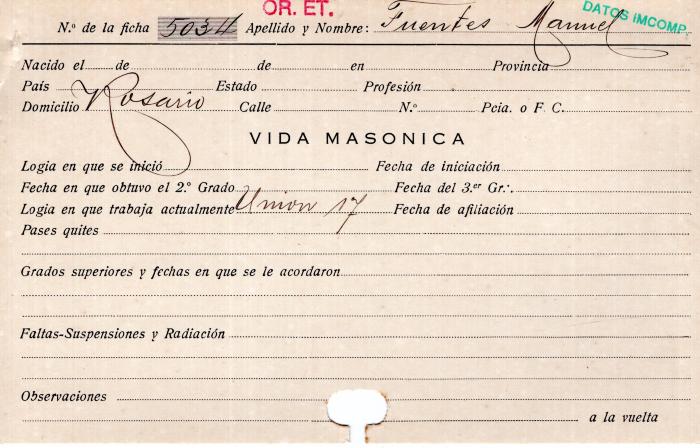 OR. ET.
DATOS IMCOMP.
N.º de la ficha 5034 Apellido y Nombre: Fuentes Manuel
Nacido el de de en Provincia
País Estado Profesión
Domicilio Rosario Calle N.º Pcia. o F. C.
VIDA MASONICA
Logia en que se inició Fecha de iniciación
Fecha en que obtuvo el 2.º Grado Fecha del 3.er Gr∴
Logia en que trabaja actualmente Union 17 Fecha de afiliación
Pases quites
Grados superiores y fechas en que se le acordaron
Faltas-Suspensiones y Radiación
Observaciones
a la vuelta